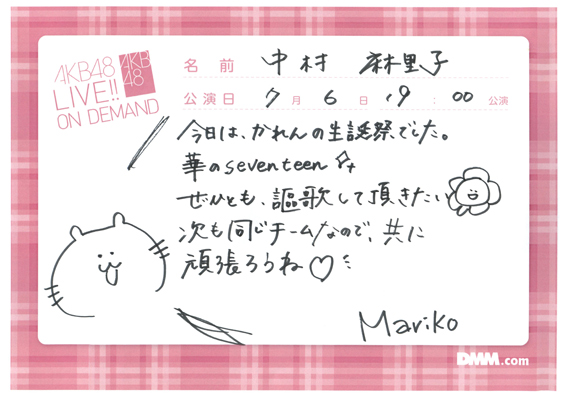 AKB48
LIVE!!
ON DEMAND
AKB
48
名前 中村 麻里子
公演日 7月6日 19:00公演
今日は、かれんの生誕祭でした。
華のseventeen
ぜひとも、謳歌して頂きたい
次も同じチームなので、共に
頑張ろうね♡
Mariko
DMM.com